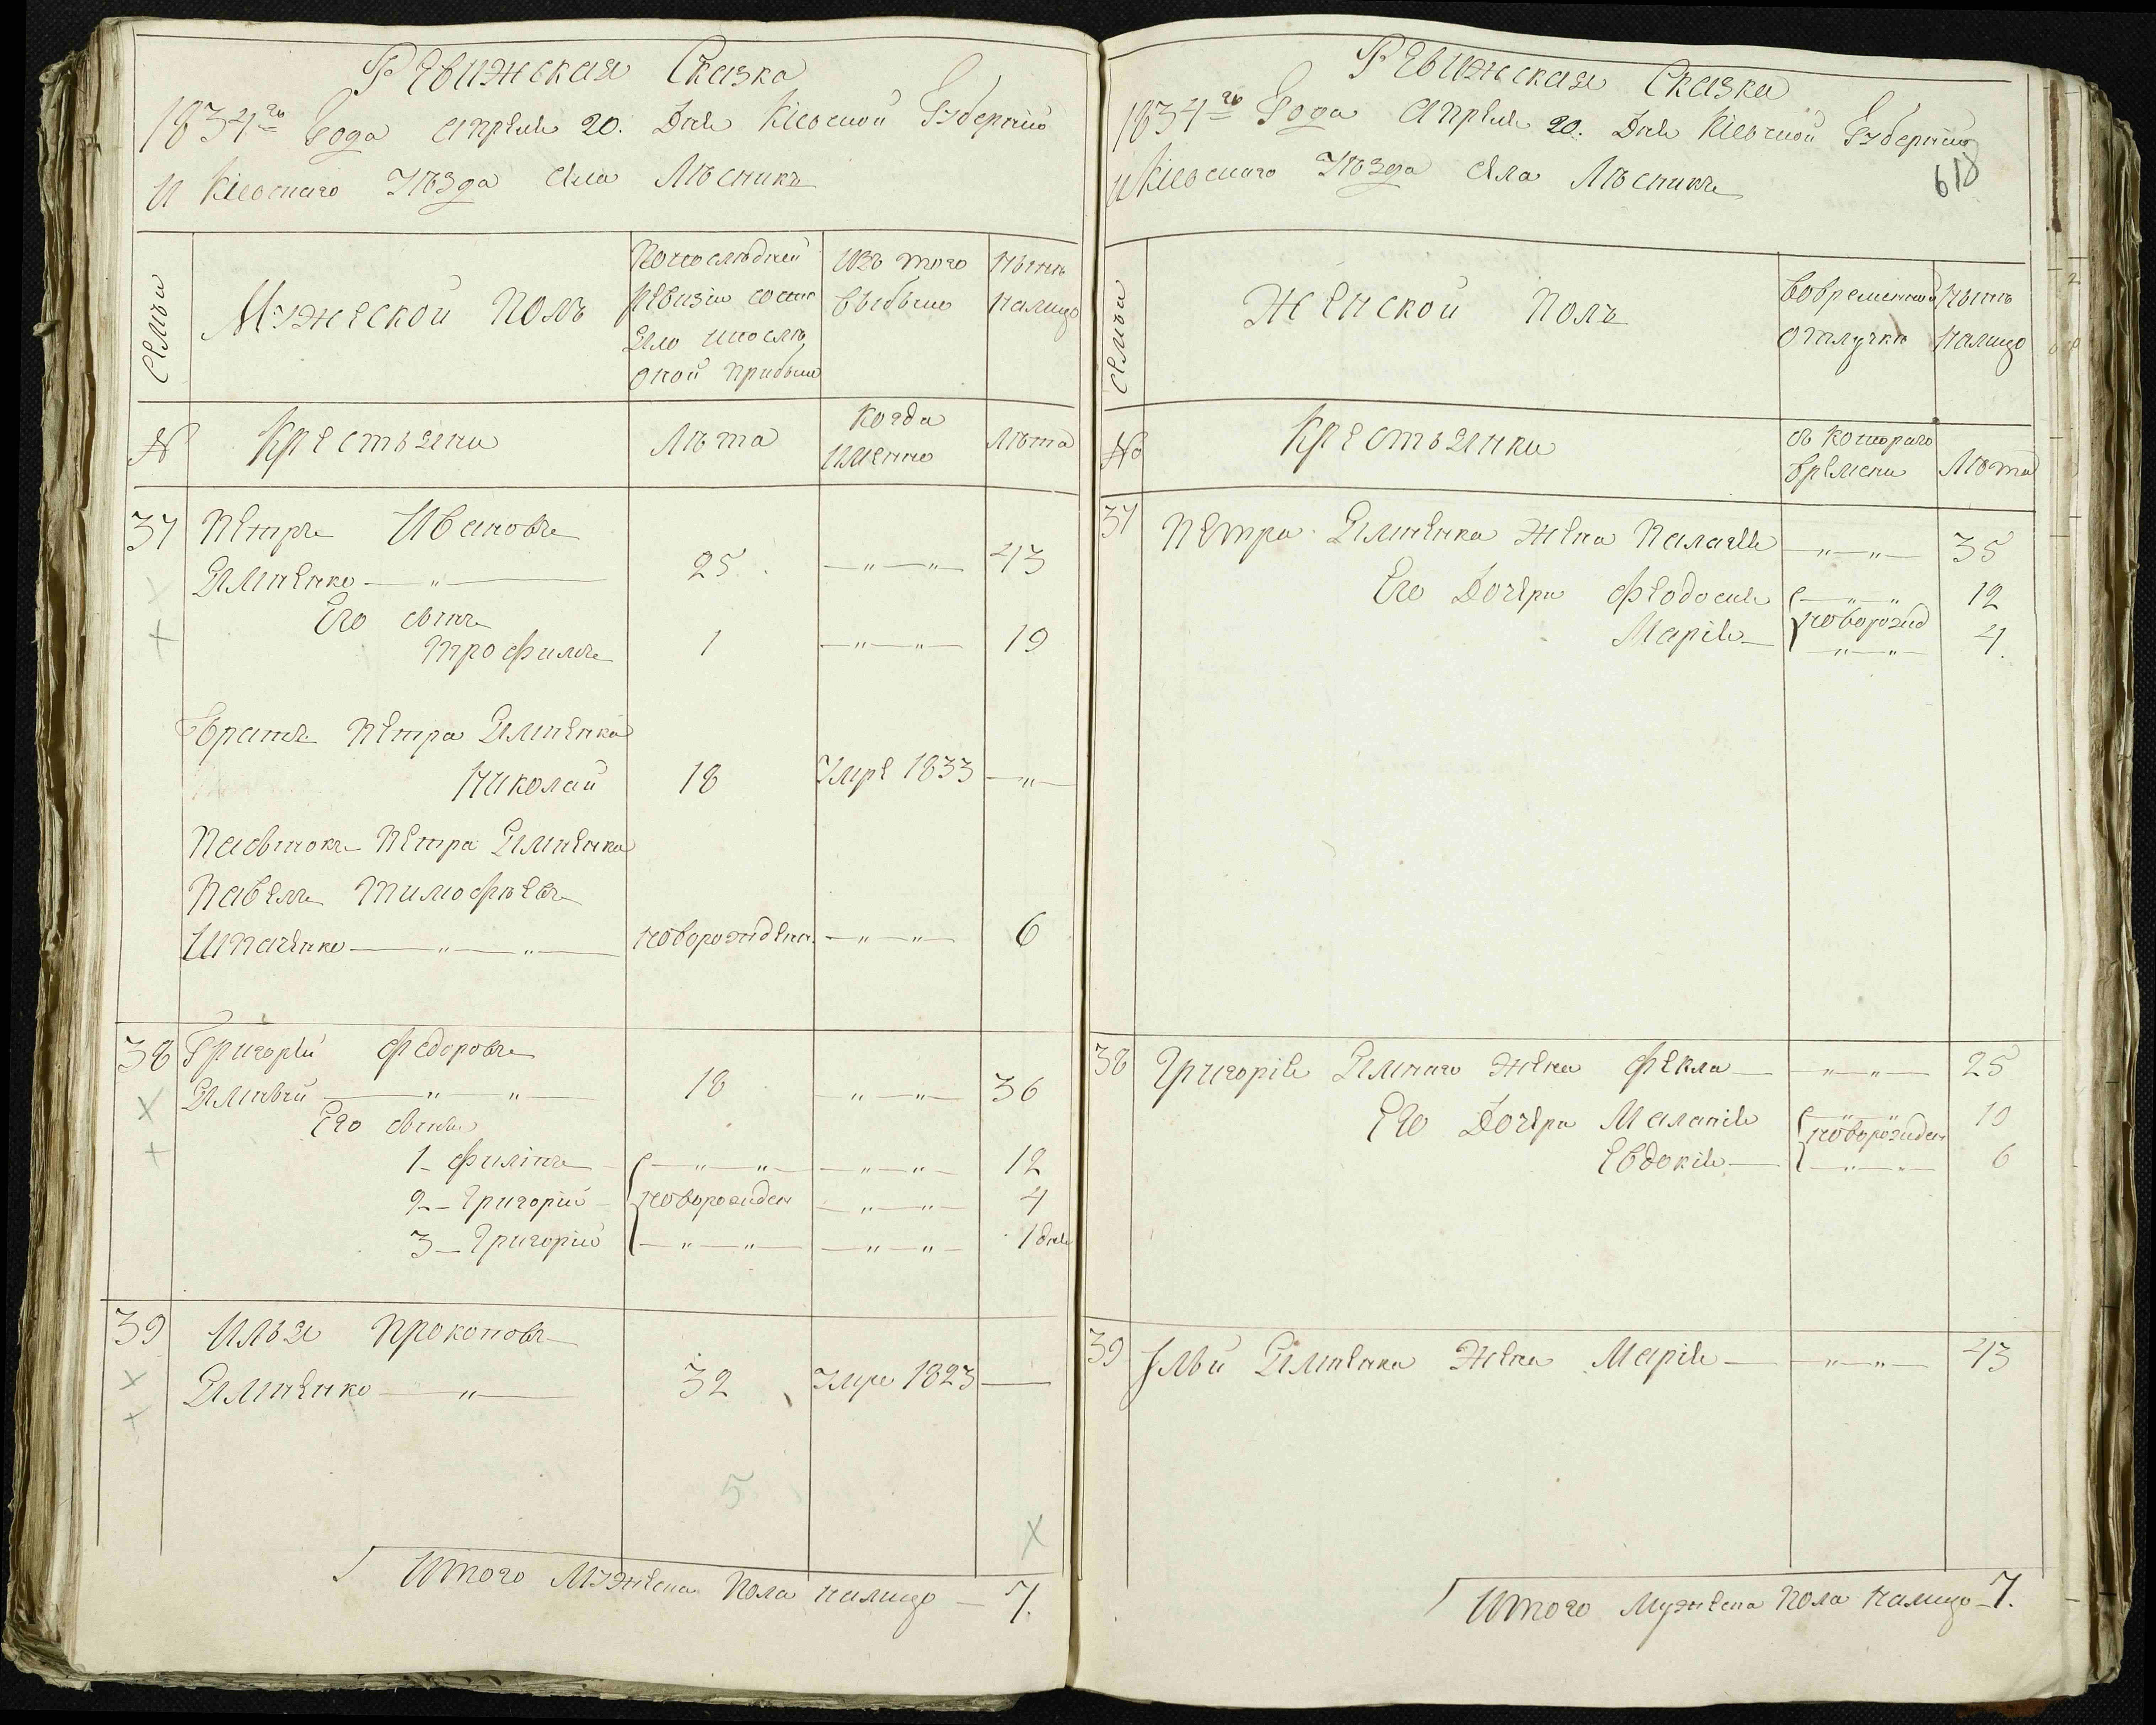 Ревижская Сказка
1834го Года Апреля 20. Дня Кіевской Губерніи
и Кіевскаго Уѣзда села Лѣсникъ
Семьи
Мужеской Полъ
По последней ревизіи состо яло и после оной прибыло
Изъ того выбыло
Нынѣ налицо
№
Крестьяни
Лѣта
Когда именно
Лѣта
37 Петръ Ивановъ
Ямненко — " — 25 — " — " — 43
Его сынъ
Трофимъ 1 — " — " — 19
Братъ Петра Ямненка
Николай 18 Умре 1833 — " —
Пасынокъ Петра Ямненка
Павелъ Тимофѣевъ
Шпаченко — " — " — новорожденн. — " — " — 6
38 Григорій Федоровъ
Ямный — " — " — 18 — " — " — 36
Его сыны
1 - Филіпъ — " — " — — " — " — 12
2 - Григорій - новорожден — " — " — 4
3 - Григорій — " — " — — " — " — 1 дня
39 Илья Прокоповъ
Ямненко — " — 32 Умре 1823 —
5
Итого Мужеска Пола налицо — 7.
Ревижская Сказка
1834го Года Апреля 20. Дня Кіевской Губерніи
и Кіевскаго Уѣзда села Лѣсникъ
618
Семьи
Женской Полъ
Во временной отлучкѣ
Нынѣ налицо
№
Крестьянки
съ котораго времени
Лѣта
37 Петра Ямненка жена Палагея — " — " — 35
Его Дочери Феодосия — " — " — 12
новорожд
Марія — — " — " — 4.
38 Григорія Ямнаго жена Фекла — — " — " — 25
Его Дочери Маланія — " — " — 10
новорожден
Евдокія — — " — " — 6
39 Ильи Ямненка жена Марія — — " — " — 43
Итого Мужеска Пола налицо - 7.